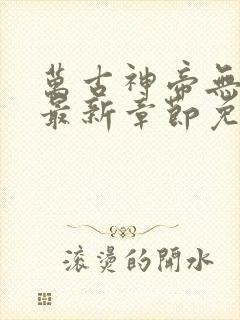 萬古神帝無
最新章節免
滾燙的開水